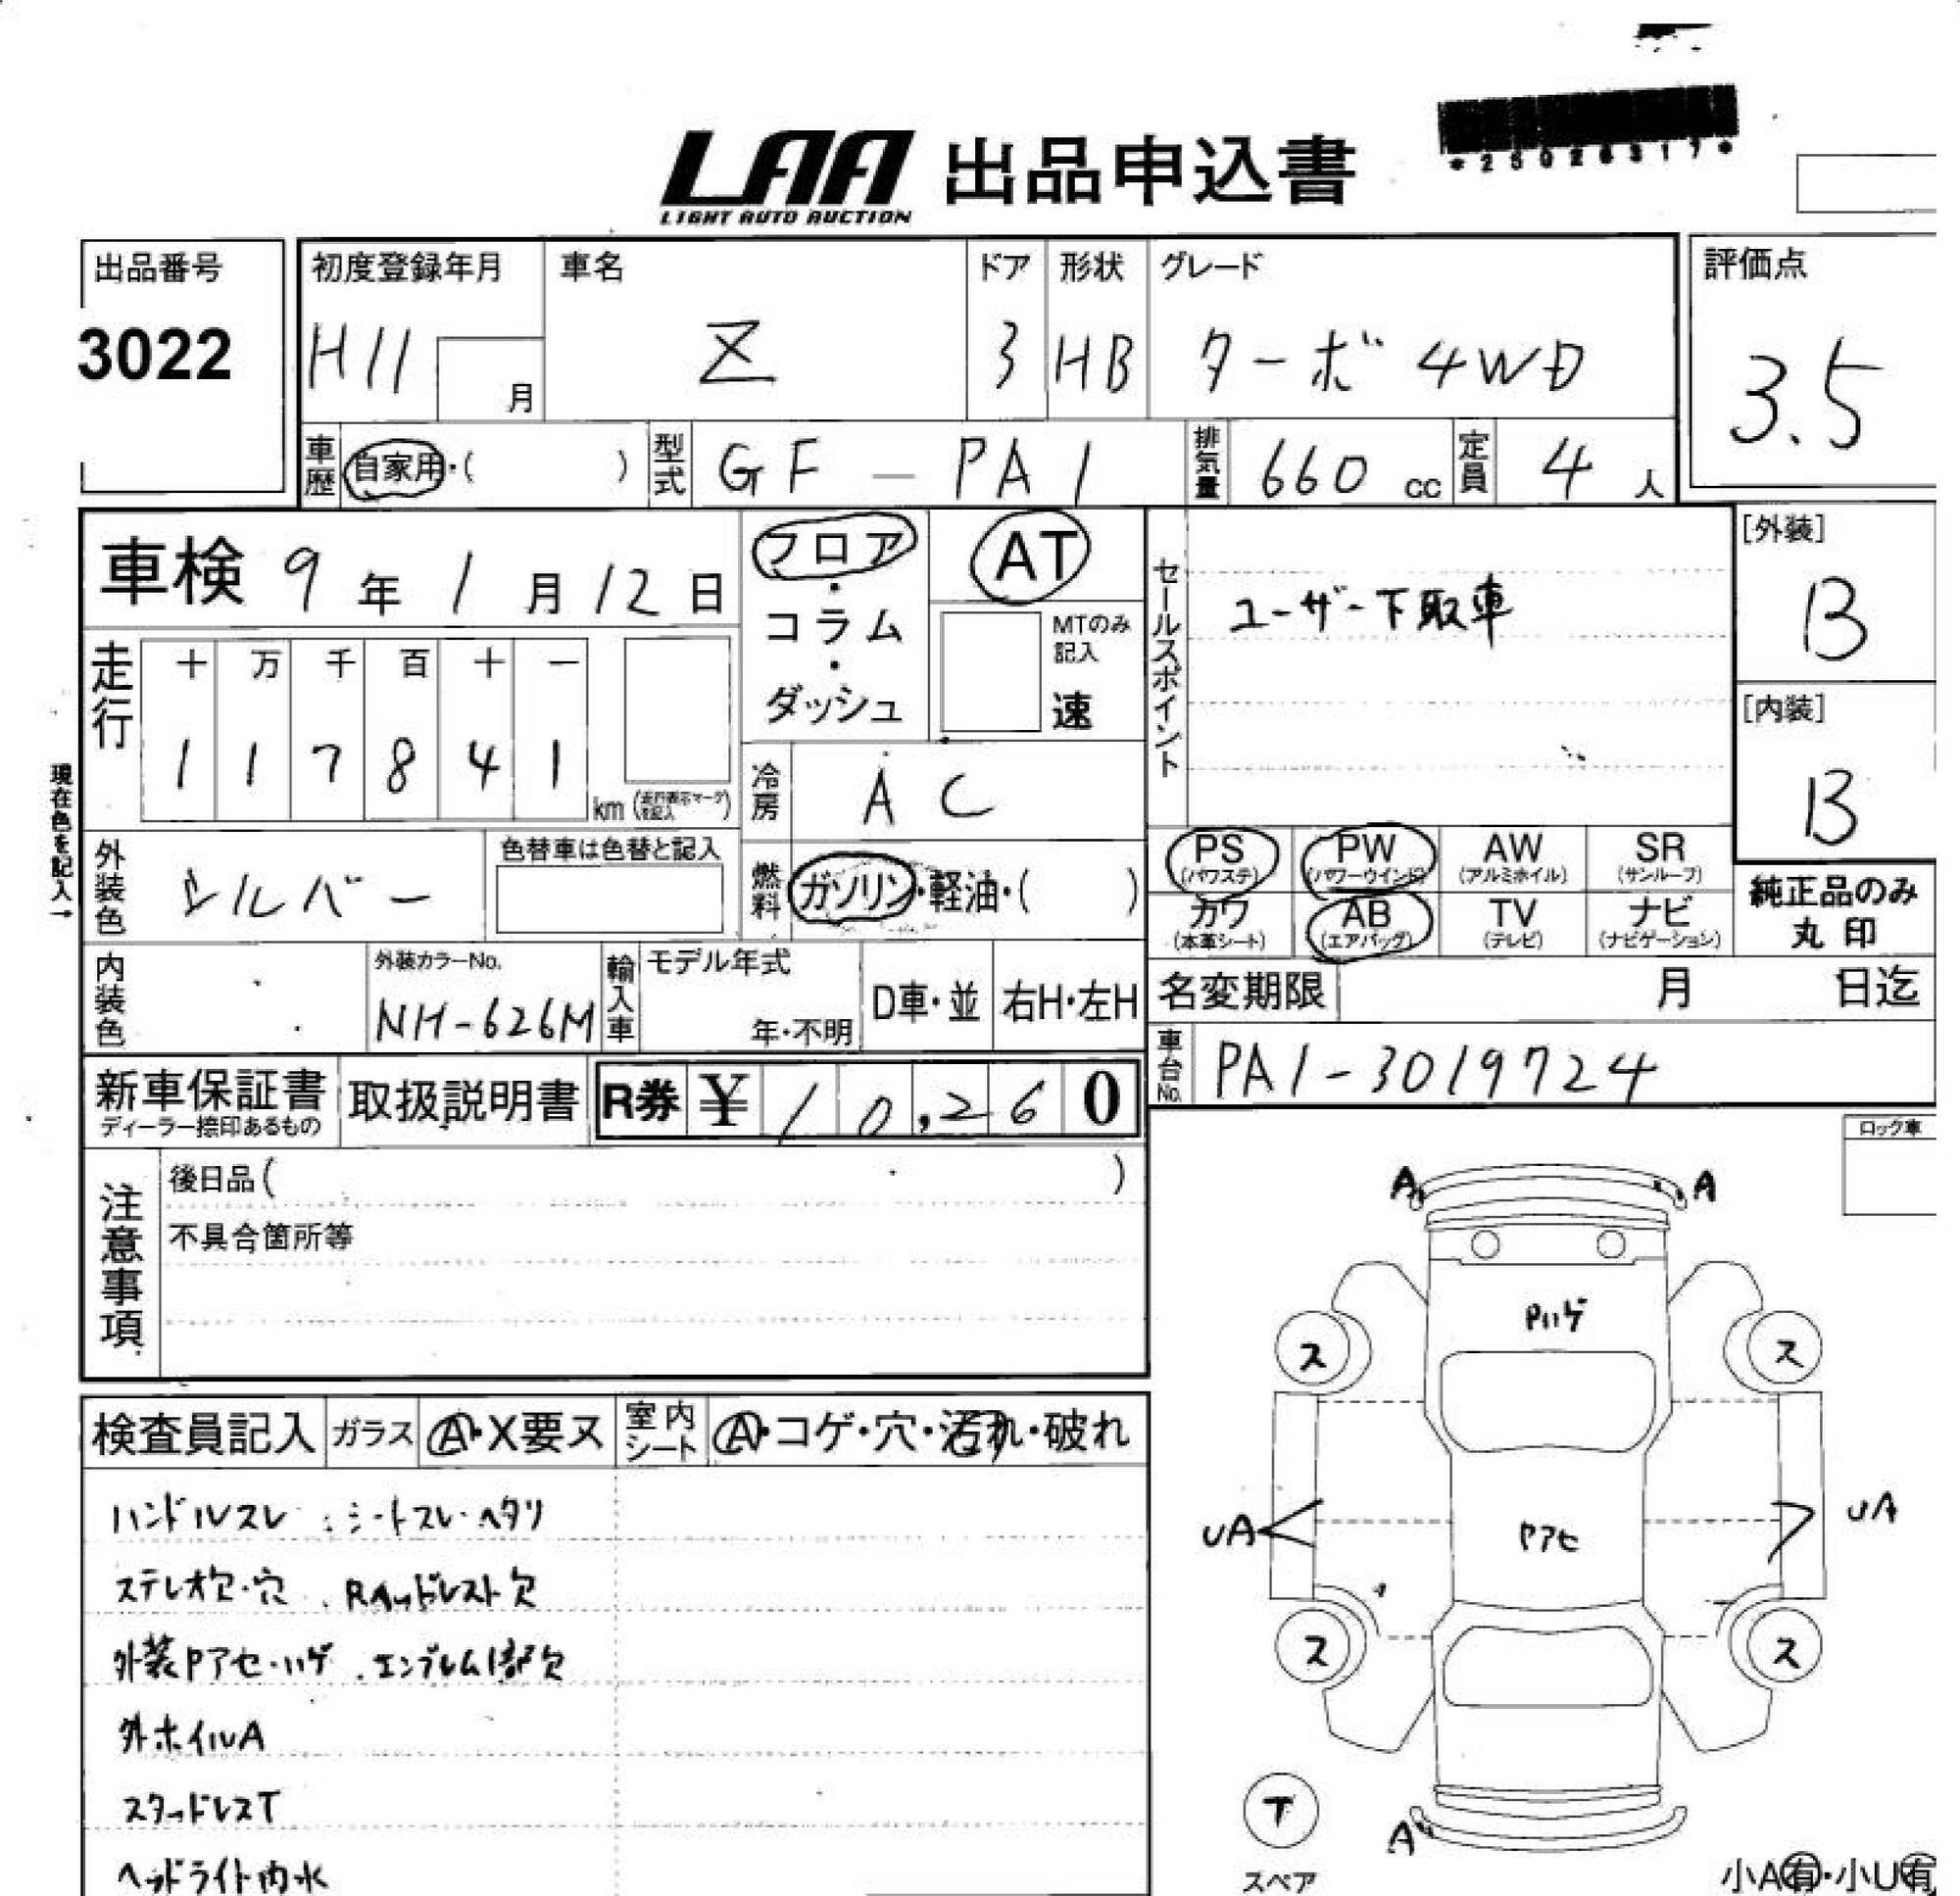 *25028317*
LAA 出品申込書
LIGHT AUTO AUCTION
出品番号
3022
初度登録年月 車名 ドア 形状 グレード
H11 月 Z 3 HB ターボ 4WD
評価点
3.5
車歴 自家用・( ) 型式 GF-PA1 排気量 660 cc 定員 4 人
車検 9 年 1 月 12 日
フロア・コラム・ダッシュ
AT
MTのみ記入
速
セールスポイント
ユーザー下取車
[外装]
B
[内装]
B
走行
十 万 千 百 十 一
1 1 7 8 4 1 km
現在色を記入→
冷房 AC
外装色 シルバー
色替車は色替と記入
燃料 ガソリン・軽油・( )
PS (パワステ) PW (パワーウインド) AW (アルミホイル) SR (サンルーフ)
カワ (本革シート) AB (エアバッグ) TV (テレビ) ナビ (ナビゲーション)
純正品のみ
丸印
内装色
外装カラーNo.
NH-626M
輸入車 モデル年式
年・不明
D車・並 右H・左H
名変期限 月 日迄
車台No. PA1-3019724
新車保証書
ディーラー捺印あるもの
取扱説明書
R券 ¥ 10,260
ロック車
注意事項
後日品( )
不具合箇所等
検査員記入 ガラス A・X要ヌ 室内シート A・コゲ・穴・汚れ・破れ
ハンドルスレ シートスレ・ヘタリ
ステレオ欠・穴 Rヘッドレスト欠
外装Pアセ・ハゲ エンブレム1部欠
外ホイルA
スタッドレスT
ヘッドライト内水
A A
Pハゲ
ス ス
UA Pアセ UA
ス ス
T
スペア
A
小A有・小U有